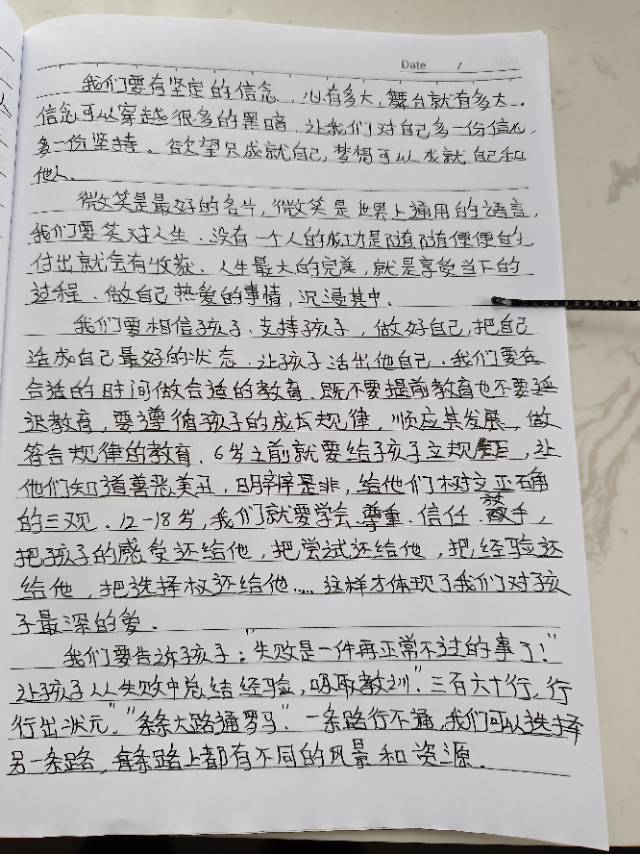 Date /
我们要有坚定的信念，心有多大，舞台就有多大。
信念可以穿越很多的黑暗，让我们对自己多一份信心，
多一份坚持。欲望只成就自己，梦想可以成就自己和
他人。
微笑是最好的名片，微笑是世界上通用的语言，
我们要笑对人生．没有一个人的成功是随随便便的，
付出就会有收获．人生最大的完美，就是享受当下的
过程．做自己热爱的事情，沉浸其中．
我们要相信孩子．支持孩子，做好自己，把自己
活成自己最好的状态．让孩子活出他自己．我们要在
合适的时间做合适的教育．既不要提前教育也不要延
迟教育，要遵循孩子的成长规律，顺应其发展，做
符合规律的教育．6岁之前就要给孩子立规矩，让
他们知道善恶美丑，明辨是非，给他们树立正确
的三观．12-18岁，我们就要学会．尊重．信任．放手，
把孩子的感受还给他，把尝试还给他，把经验还
给他，把选择权还给他……这样才体现了我们对孩
子最深的爱．
我们要告诉孩子："失败是一件再正常不过的事了！"
让孩子从失败中总结经验，吸取教训．"三百六十行，行
行出状元"，"条条大路通罗马"．一条路行不通，我们可以选择
另一条路，每条路上都有不同的风景和资源．